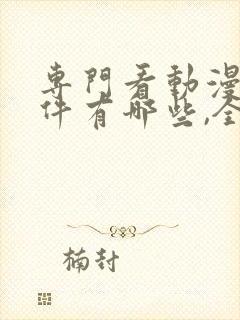 專門看動漫
件有哪些,全
楠封